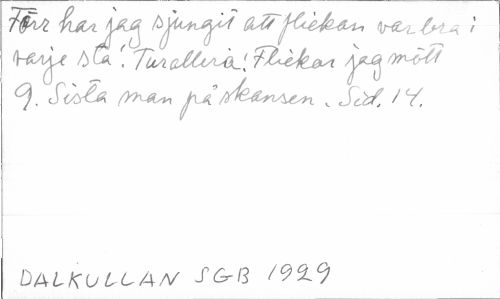 Förr har jag sjungit att flickan var bra i
varje stå! Turalleria! Flickor jag mött
9. Sista man på skansen. Sid. 14.
DALKULLAN SGB 1929